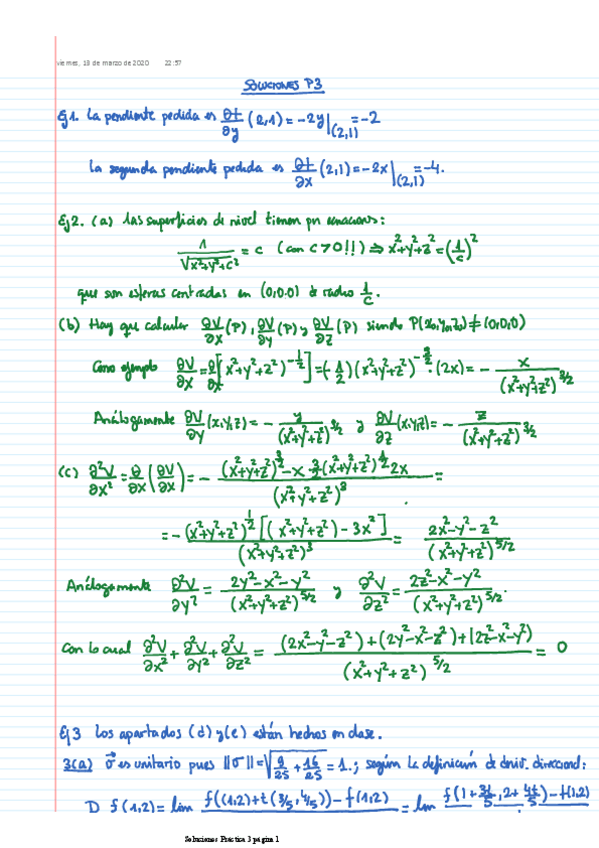 viernes, 13 de marzo de 2020 22:57
SOLUCIONES P3
Ej1. La pendiente pedida es ∂f/∂y (2,1) = -2y|(2,1) = -2
La segunda pendiente pedida es ∂f/∂x (2,1) = -2x|(2,1) = -4.
Ej2. (a) Las superficies de nivel tienen por ecuaciones:
1/√(x²+y²+c²) = c (con c>0!!) ⇒ x²+y²+z² = (1/c)²
que son esferas centradas en (0,0,0) de radio 1/c.
(b) Hay que calcular ∂V/∂x (P), ∂V/∂y (P) y ∂V/∂z (P) siendo P(x₀,y₀,z₀) ≠ (0,0,0)
Como ejemplo ∂V/∂x = ∂/∂x [x²+y²+z²)^(-1/2)] = (-1/2)(x²+y²+z²)^(-3/2)·(2x) = - x/(x²+y²+z²)^(3/2)
Análogamente ∂V/∂y (x,y,z) = - y/(x²+y²+z²)^(3/2) y ∂V/∂z (x,y,z) = - z/(x²+y²+z²)^(3/2)
(c) ∂²V/∂x² = ∂/∂x (∂V/∂x) = - ((x²+y²+z²)^(3/2) - x·3/2(x²+y²+z²)^(1/2) 2x)/(x²+y²+z²)³ =
= - (x²+y²+z²)^(1/2) [(x²+y²+z²) - 3x²]/(x²+y²+z²)³ = (2x²-y²-z²)/(x²+y²+z²)^(5/2)
Análogamente ∂²V/∂y² = (2y²-x²-y²)/(x²+y²+z²)^(5/2) y ∂²V/∂z² = (2z²-x²-y²)/(x²+y²+z²)^(5/2).
Con lo cual ∂²V/∂x² + ∂²V/∂y² + ∂²V/∂z² = ((2x²-y²-z²)+(2y²-x²-z²)+(2z²-x²-y²))/(x²+y²+z²)^(5/2) = 0
Ej3 Los apartados (d) y (e) están hechos en clase.
3(a) v⃗ es unitario pues ||v|| = √(9/25 + 16/25) = 1.; según la definición de deriv. direccional:
D f(1,2) = lim (f((1,2)+t(3/5,4/5)) - f(1,2) = lim f(1+3t/5, 2+4t/5) - f(1,2)
Soluciones Práctica 3 página 1